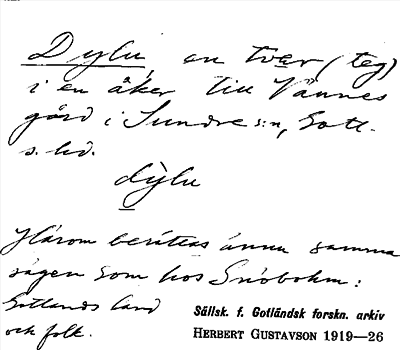 Dylu, en tvär (teg)
i en åker till Vännes
gård i Sundre s:n, Gotl.
s. hd.
dỳlu
Härom berättas ännu samma
sägen som hos Snöbohm:
Gotlands land
och folk.
Sällsk. f. Gotländsk forskn. arkiv
HERBERT GUSTAVSON 1919—26